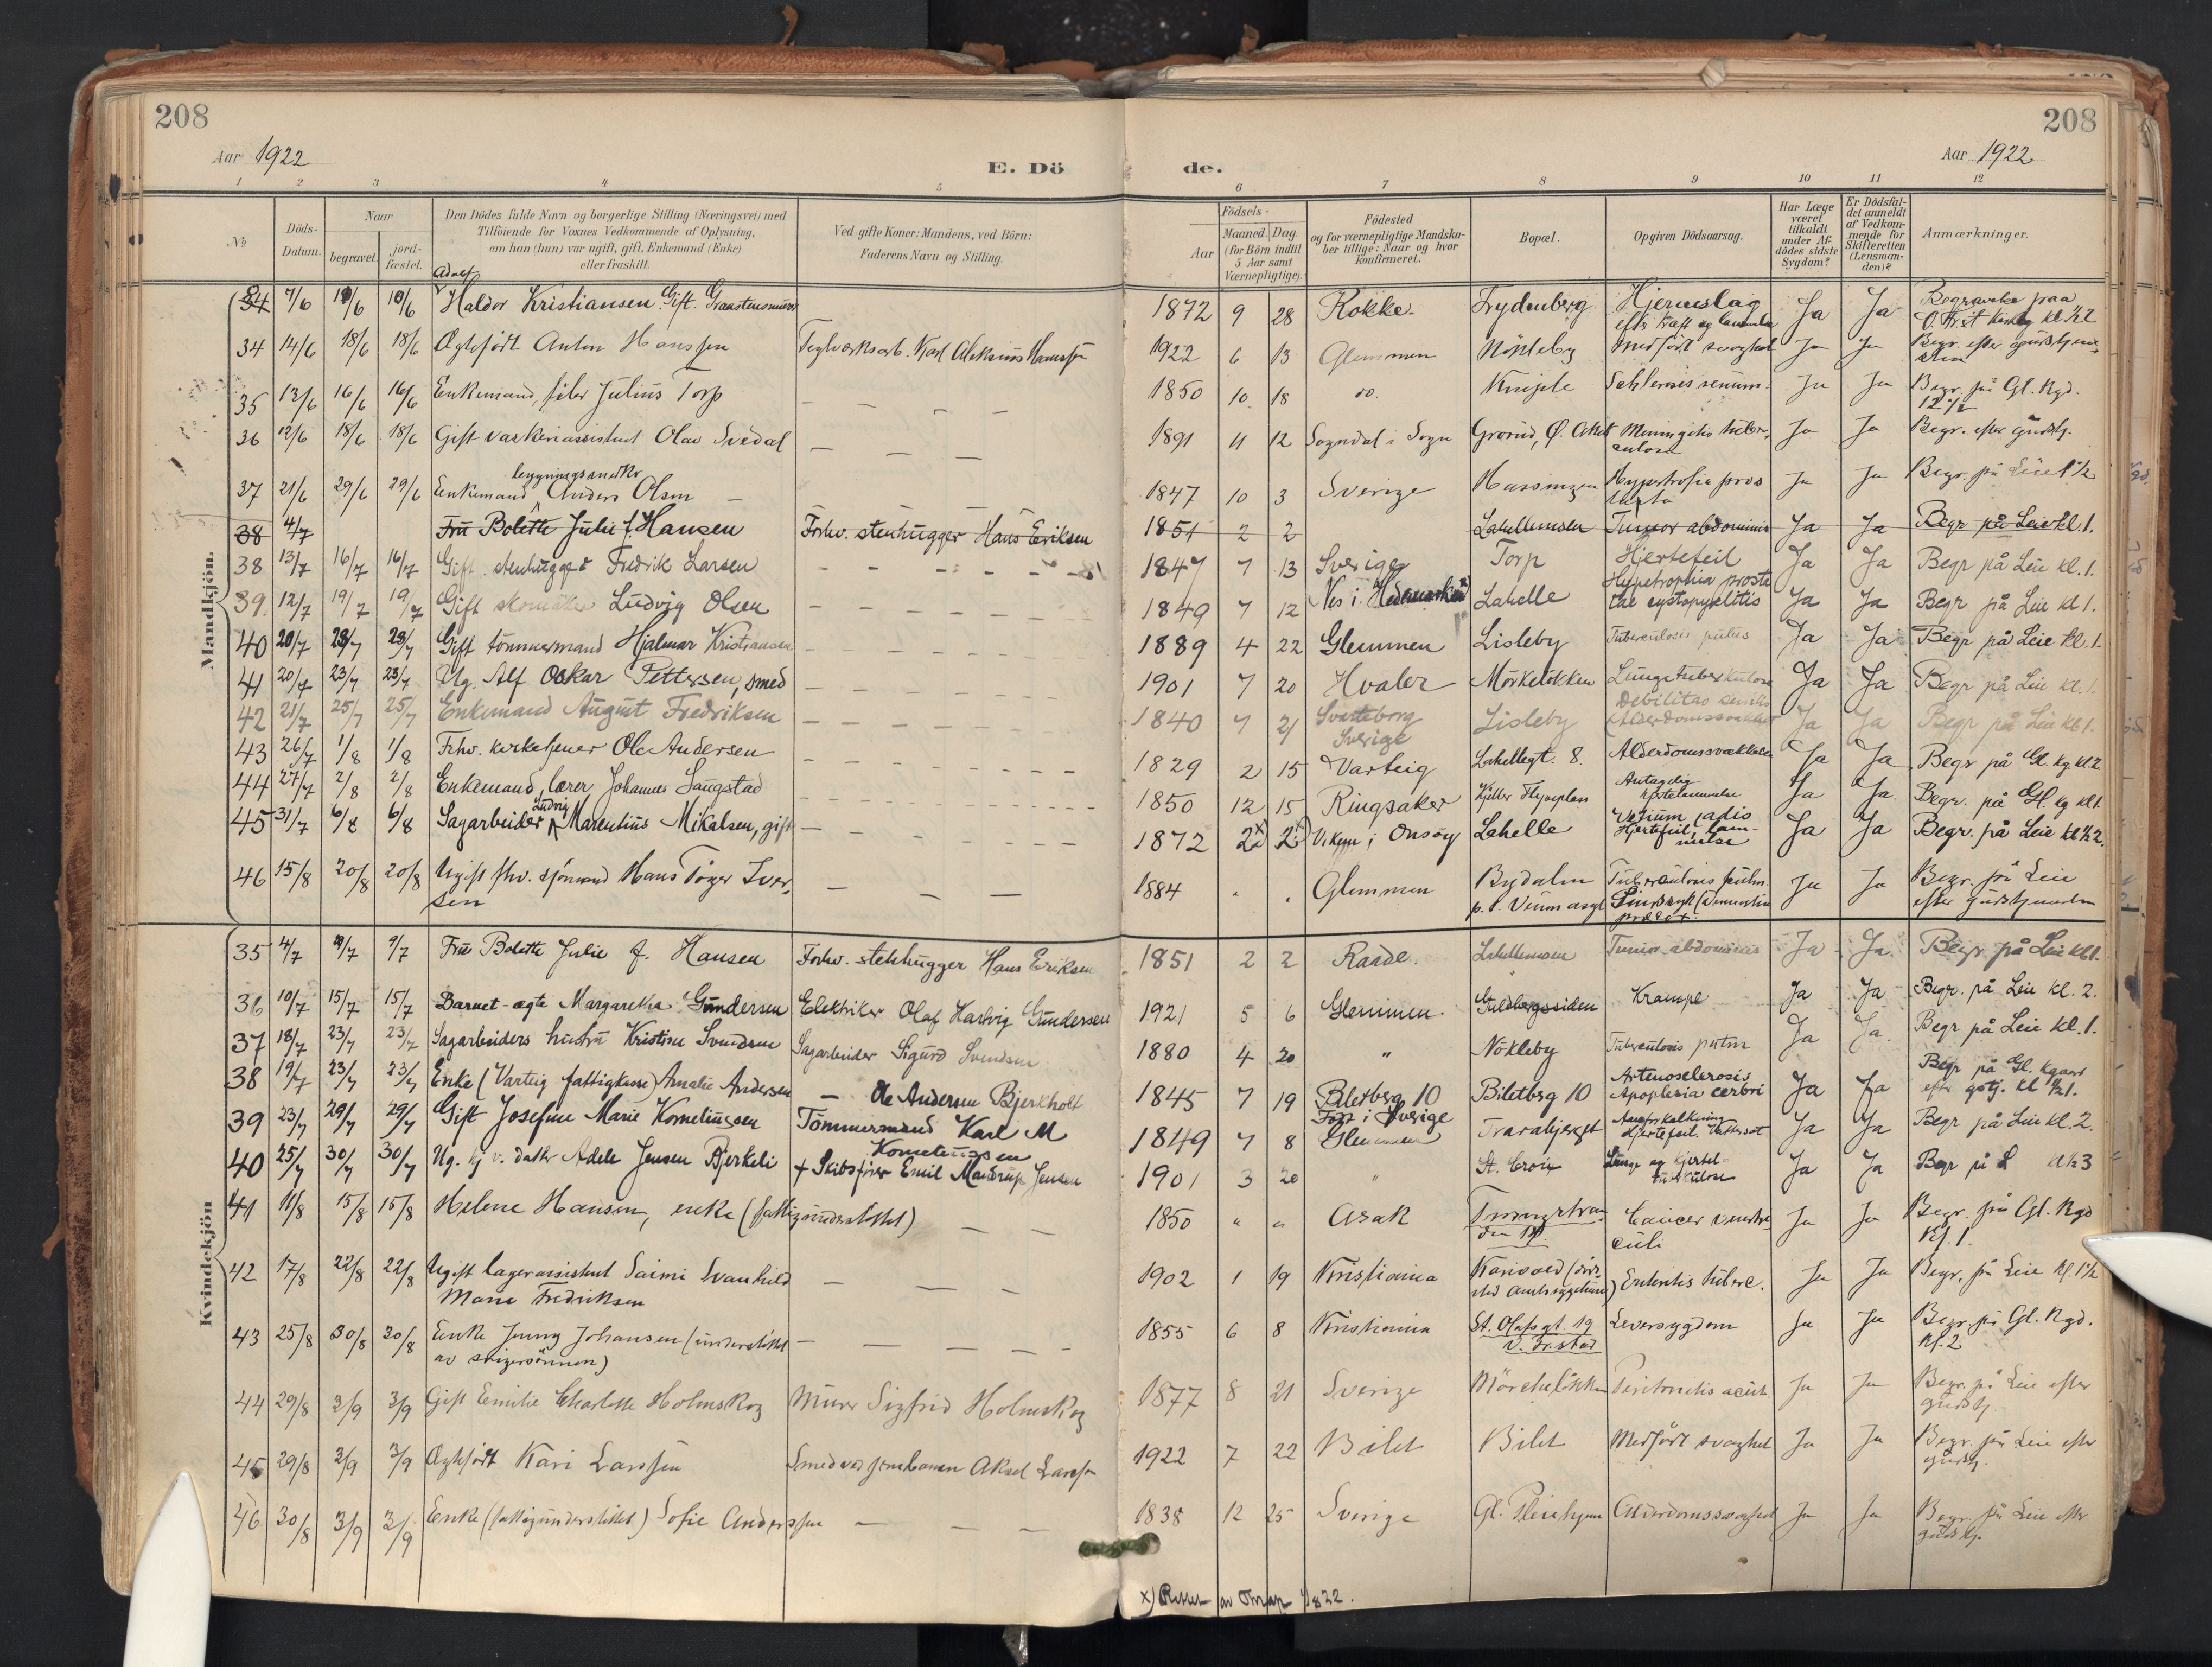 208
208
Aar 1922
E. Dö
de.
Aar 1922
1 2 3 4 5 6 7 8 9 10 11 12
№
Döds-Datum.
Naar
begravet.
jord-fæstet.
Den Dödes fulde Navn og borgerlige Stilling (Næringsvei) med
Tilföiende for Voxnes Vedkommende af Oplysning,
om han (hun) var ugift, gift, Enkemand (Enke)
eller fraskilt.
Ved gifte Koner: Mandens, ved Börn:
Faderens Navn og Stilling.
Födsels-
Aar
Maaned. Dag.
(for Börn indtil
5 Aar samt
Værnepligtige).
Födested
og for værnepligtige Mandska-
ber tillige: Naar og hvor
konfirmeret.
Bopæl.
Opgiven Dödsaarsag.
Har Læge
været
tilkaldt
under Af-
dödes sidste
Sygdom?
Er Dödsfal-
det anmeldt
af Vedkom-
mende for
Skifteretten
(Lensman-
den)?
Anmærkninger.
Mandkjön.
Adolf
34 7/6 10/6 10/6 Haldor Kristiansen Gift. 1872 9 28 Rokke. Frydenberg Hjerneslag Ja Ja
34 14/6 18/6 18/6 Ægtefödt Anton Hanssen Teglverksarb. Karl Aleksius Hanssen 1922 6 13 Glemmen Nökleby Medfödt svaghet Ja Ja Begr. efter gudstjene
35 13/6 16/6 16/6 Enkemand, Julius Torp 1850 10 18 do. Kniple Ja Ja Begr. på Gl. Kgd.
12 1/2
36 12/6 18/6 18/6 Gift vaskeriassistent Olav Svedal 1891 11 12 Sogndal i Sogn Grorud, Ø. Aker Meningitis tuber- Ja Ja Begr. efter gudstj.
culosa
37 21/6 29/6 29/6 Enkemand Anders Olsen 1847 10 3 Sverige Hassingen Hypertrofia pros Ja Ja Begr. på Leie 1 1/2
tata
38 4/7 Fru Bolette Julie f. Hansen Forhv. stenhugger Hans Eriksen 1851 2 2 Lahellemoen Tumor abdominis Ja Ja Begr på Leie kl. 1.
38 13/7 16/7 16/7 Gift. stenhugger Fredrik Larsen 1847 7 13 Sverige Torp Hjertefeil Ja Ja Begr på Leie kl. 1.
39. 12/7 19/7 19/7 Gift skomaker Ludvig Olsen 1849 7 12 Nes i Hedemarken Lahelle Hypetrophia prosta
tae cystopyelitis Ja Ja Begr på Leie kl 1.
40 20/7 23/7 23/7 Gift tömmermand Hjalmar Kristiansen 1889 4 22 Glemmen Lisleby Tuberculosis pulm Ja Ja Begr på Leie kl. 1.
41 20/7 23/7 23/7 Ug. Alf Oskar Pettersen, smed 1901 7 20 Hvaler Mörkelökken Lungetuberkulose Ja Ja Begr på Leie kl. 1.
42 21/7 25/7 25/7 Enkemand August Fredriksen 1840 7 21 Svarteborg Lisleby Debilitas senilis Ja Ja Begr på Leie kl 1.
Sverige
43 26/7 1/8 1/8 Frhv. kirketjener Ole Andersen 1829 2 15 Varteig Lahellegt. 8. Alderdomssvakkelse Ja Ja Begr på Gl. kg kl 2
44 27/7 2/8 2/8 Enkemand, lærer Johannes Saugstad 1850 12 15 Ringsaker Kjeller Flyveplass Antagelig
hjertelammelse Ja Ja Begr. på Gl. kg kl 1.
45 31/7 6/8 6/8 Sagarbeider Ludvig Marentius Mikalsen, gift 1872 2x 2 Viken i Onsöy Lahelle Hjertefeil, lam-
melse Ja Ja Begr. på Leie kl 1/2 2.
46 15/8 20/8 20/8 Ugift fhv. sjömand Hans Töger Iver- 1884 Glemmen Bydalen Tuberculosis pulm. Ja Ja Begr. på Leie
sen p. t. Veum asyl efter gudstjenesten
Kvindekjön
35 4/7 9/7 9/7 Fru Bolette Julie f. Hansen Forhv. stenhugger Hans Eriksen 1851 2 2 Raade. Lahellemoen Tumor abdominis Ja Ja. Begr. på Leie kl 1.
36 10/7 15/7 15/7 Barnet-ægte Margaretha Gundersen Elektriker Olaf Hartvig Gundersen 1921 5 6 Glemmen. Guldbergssiden Krampe Ja Ja Begr. på Leie kl. 2.
37 18/7 23/7 23/7 Sagarbeiders hustru Kristine Svendsen Sagarbeider Sigurd Svendsen 1880 4 20 " Nökleby Tuberculosis pulm Ja Ja. Begr på Leie kl. 1.
38 19/7 23/7 23/7 Enke (Varteig fattigkasse) Amalie Andersen — Ole Andersen Bjerkholt 1845 7 19 Biletbrg 10 Biletbrg 10 Arteriosclerosis
Apoplexia cerbri Ja Ja Begr på Gl. kgaard
efter gstj. kl 1/2 1.
39 23/7 29/7 29/7 Gift Josefine Marie Korneliussen Tömmermand Karl M
Korneliussen 1849 7 8 Födt i Sverige
Glemmen Traraberget Aareforkalkning
Hjertefeil. Vattersot Ja Ja Begr på Leie kl. 2.
40 25/7 30/7 30/7 Ug. hj v. datter Adele Jensen Bjerkeli + Skibsförer Emil Mandrup Jensen 1901 3 20 " St. Croix Lunge og kjertel-
tuberkulose Ja Ja Begr på L kl 1/2 3
41 11/8 15/8 15/8 Helene Hansen, enke (fattigunderstöttet) 1850 " " Asak Cancer ventri
culi Ja Ja Begr. på Gl. Kgd
Kl. 1.
42 17/8 22/8 22/8 Ugift lagerassistent Saimi Svanhild 1902 1 19 Kristiania Enteritis tuberc. Ja Ja Begr. på Leie Kl. 1 1/2
Marie Fredriksen
43 25/8 30/8 30/8 Enke Jenny Johansen (understöttet 1855 6 8 Kristiania St. Olafsgt. 19 Leversygdom Ja Ja Begr. på Gl. Kgd.
av svigersönnen) V. Fr.stad Kl. 2
44 29/8 3/9 3/9 Gift Emilie Charlotte Holmskog Murer Sigfrid Holmskog 1877 8 21 Sverige Mörchelökken Peritonitis acut. Ja Ja Begr. på Leie efter
gudstj
45 29/8 3/9 3/9 Ægtefödt Kari Larssen Smed ved jernbanen Aksel Larssen 1922 7 22 Bilet Bilet Medfödt svaghet Ja Ja Begr. på Leie efter
gudstj.
46 30/8 3/9 3/9 Enke (fattigunderstöttet) Sofie Anderssen 1838 12 25 Sverige Gl. Pleiehjem Alderdomssvaghet Ja Ja Begr. på Leie efter
gudstj.
x) Rettet av